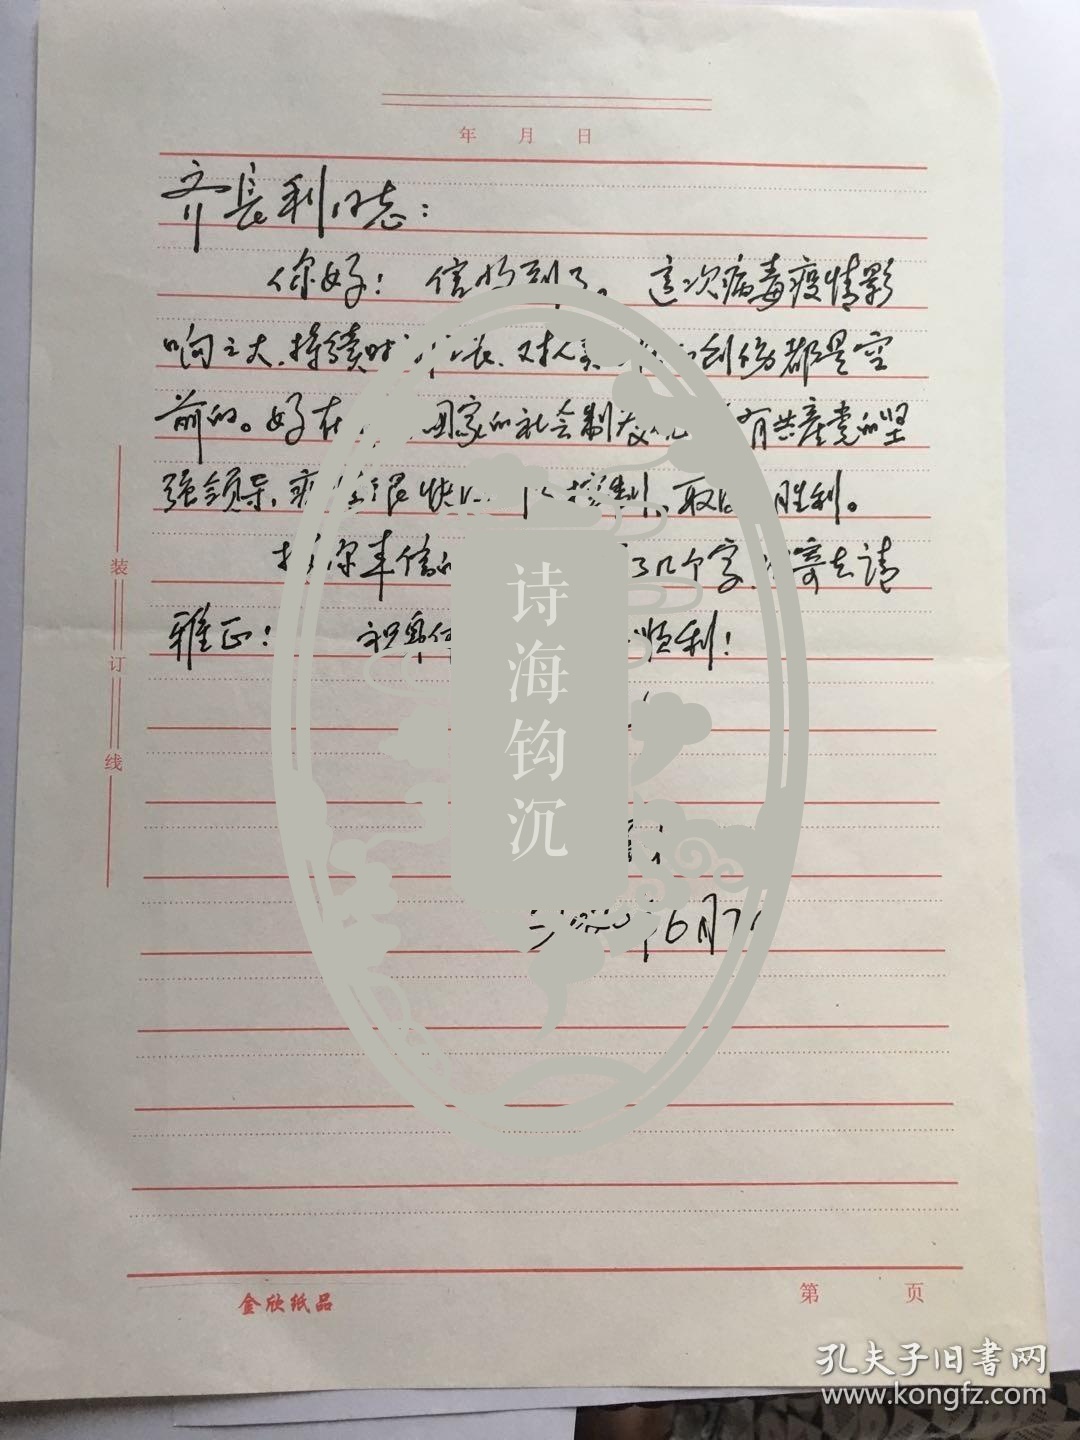 年 月 日
齐長利同志：
你好！信收到了。這次病毒疫情影
响之大、持续时 长、对人 创伤都是空
前的。好在 国家的社会制度 有共產党的坚
强领导， 很快 控制、取 胜利。
按你来信 了几个字， 寄去请
雅正！ 祝 顺利！
6月7
装
订
线
诗海钩沉
金欣纸品
第 页
孔夫子旧書网
www.kongfz.com